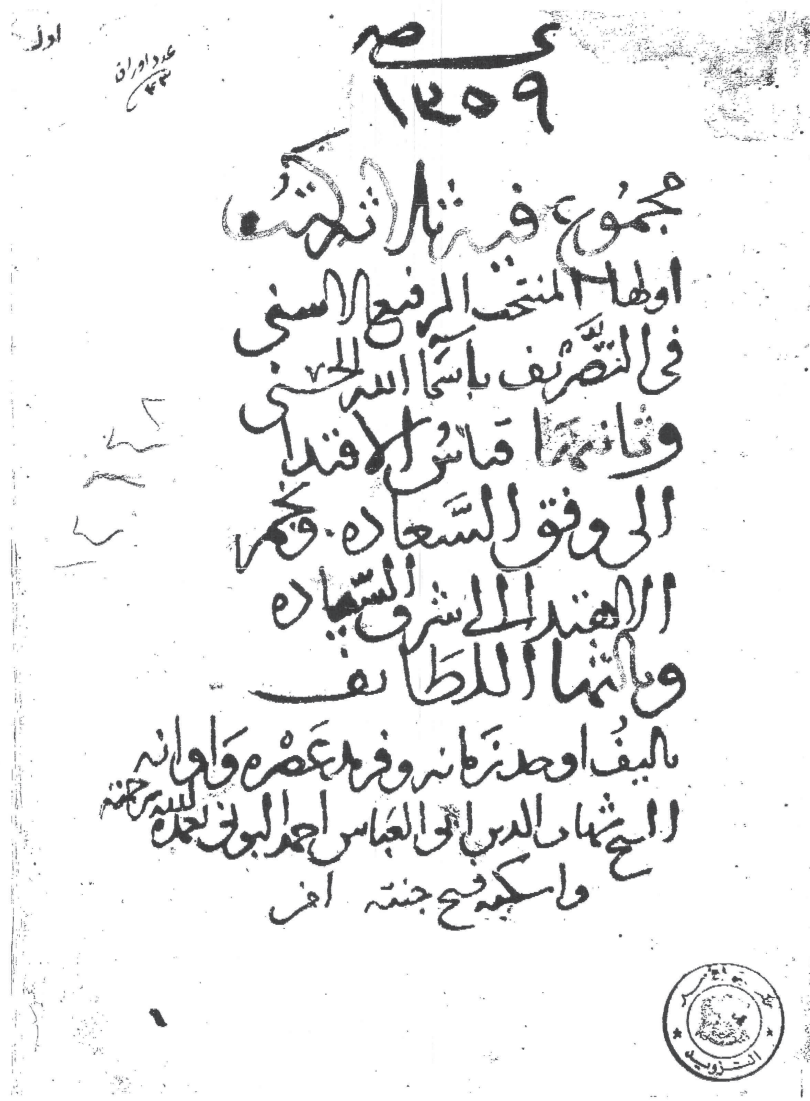 اول
عدد اوراق
٤٣
١٣٥٩
مجموع فيه ثلاثة كتب
اولها المنتخب الرفيع الاسنى
فى التصريف باسما الله الحسنى
وثانيها قباس الاقتدا
الى وفق السعاده ونجم
الاهتدا الى اشرف السياده
وثالثها اللطايف
تاليف اوحد زمانه وفريد عصره واوانه
الشيخ شهاب الدين ابو العباس احمد البونى تغمده الله برحمته
واسكنه فسيح جنته
التزويد